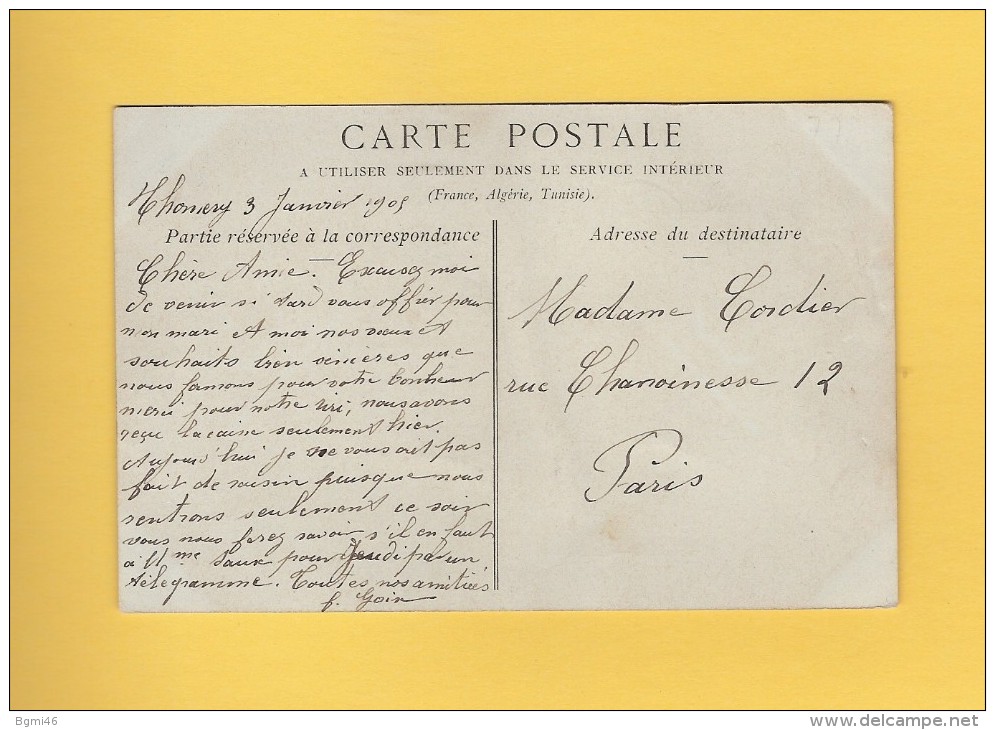 CARTE POSTALE
A UTILISER SEULEMENT DANS LE SERVICE INTÉRIEUR
(France, Algérie, Tunisie).
Thomery 3 Janvier 1905
Partie réservée à la correspondance
Chère Amie. Excusez moi
de venir si tard vous offrir pour
mon mari et moi nos vœux et
souhaits bien sincères que
nous formons pour votre bonheur
merci pour notre riri, nous avons
reçu la caisse seulement hier.
Aujourd'hui je ne vous ait pas
fait de raisin puisque nous
rentrons seulement ce soir
vous nous ferez savoir s'il en faut
à Mme pour Jeudi par un
télégramme. Toutes nos amitiées
f. Goix
Adresse du destinataire
Madame Cordier
rue Chanoinesse 12
Paris
77
Bgmi46
www.delcampe.net